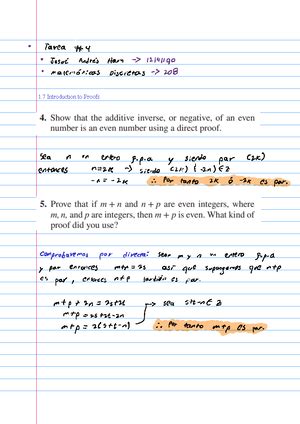 • Tarea #4
• José Andrés Haro →
• Matemáticas Discretas → 208
1.7 Introduction to Proofs
4. Show that the additive inverse, or negative, of an even
number is an even number using a direct proof.
Sea n un entero g.p.a y siendo par (2k)
entonces n=2k → siendo (2k) ∈ Z
-n = -2k ∴ Por tanto 2k ó -2k es par.
5. Prove that if m + n and n + p are even integers, where
m, n, and p are integers, then m + p is even. What kind of
proof did you use?
Comprobaremos por directa: sean m y n un entero g.p.a
y por entonces m+n=2s así que supongamos que n+p
es par, entonces n+p también es par.
m+p+2n = 2s+2t → sea s+t-n ∈ Z
m+p = 2s+2t-2n
m+p = 2(s+t-n) ∴ Por tanto m+p es par.